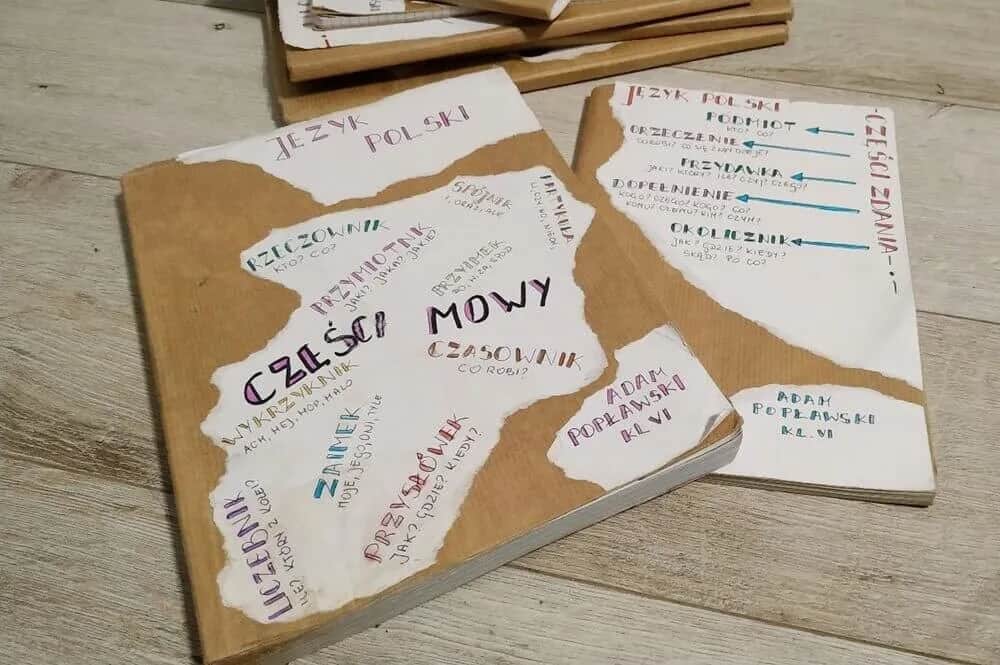 JĘZYK POLSKI
RZECZOWNIK
KTO? CO?
PRZYMIOTNIK
JAKI? JAKA? JAKIE?
SPÓJNIK
I, ORAZ, ALE
PARTYKUŁA
PRZYIMEK
CZĘŚCI MOWY
CZASOWNIK
CO ROBI?
WYKRZYKNIK
ACH, HEJ, HOP, HALO
ZAIMEK
MOJE, JEGO, ONI, TYLE
PRZYSŁÓWEK
JAK? GDZIE? KIEDY?
LICZEBNIK
ILE?
ADAM
POPŁAWSKI
KL.VI
JĘZYK POLSKI
-CZĘŚCI ZDANIA-
PODMIOT
KTO? CO?
ORZECZENIE
PRZYDAWKA
JAKI? KTÓRY? ILE? CZYJ? CZEGO?
DOPEŁNIENIE
KOGO? CZEGO? KOGO? CO?
KOMU? CZEMU? KIM? CZYM?
OKOLICZNIK
JAK? GDZIE? KIEDY?
SKĄD? PO CO?
ADAM
POPŁAWSKI
KL.VI